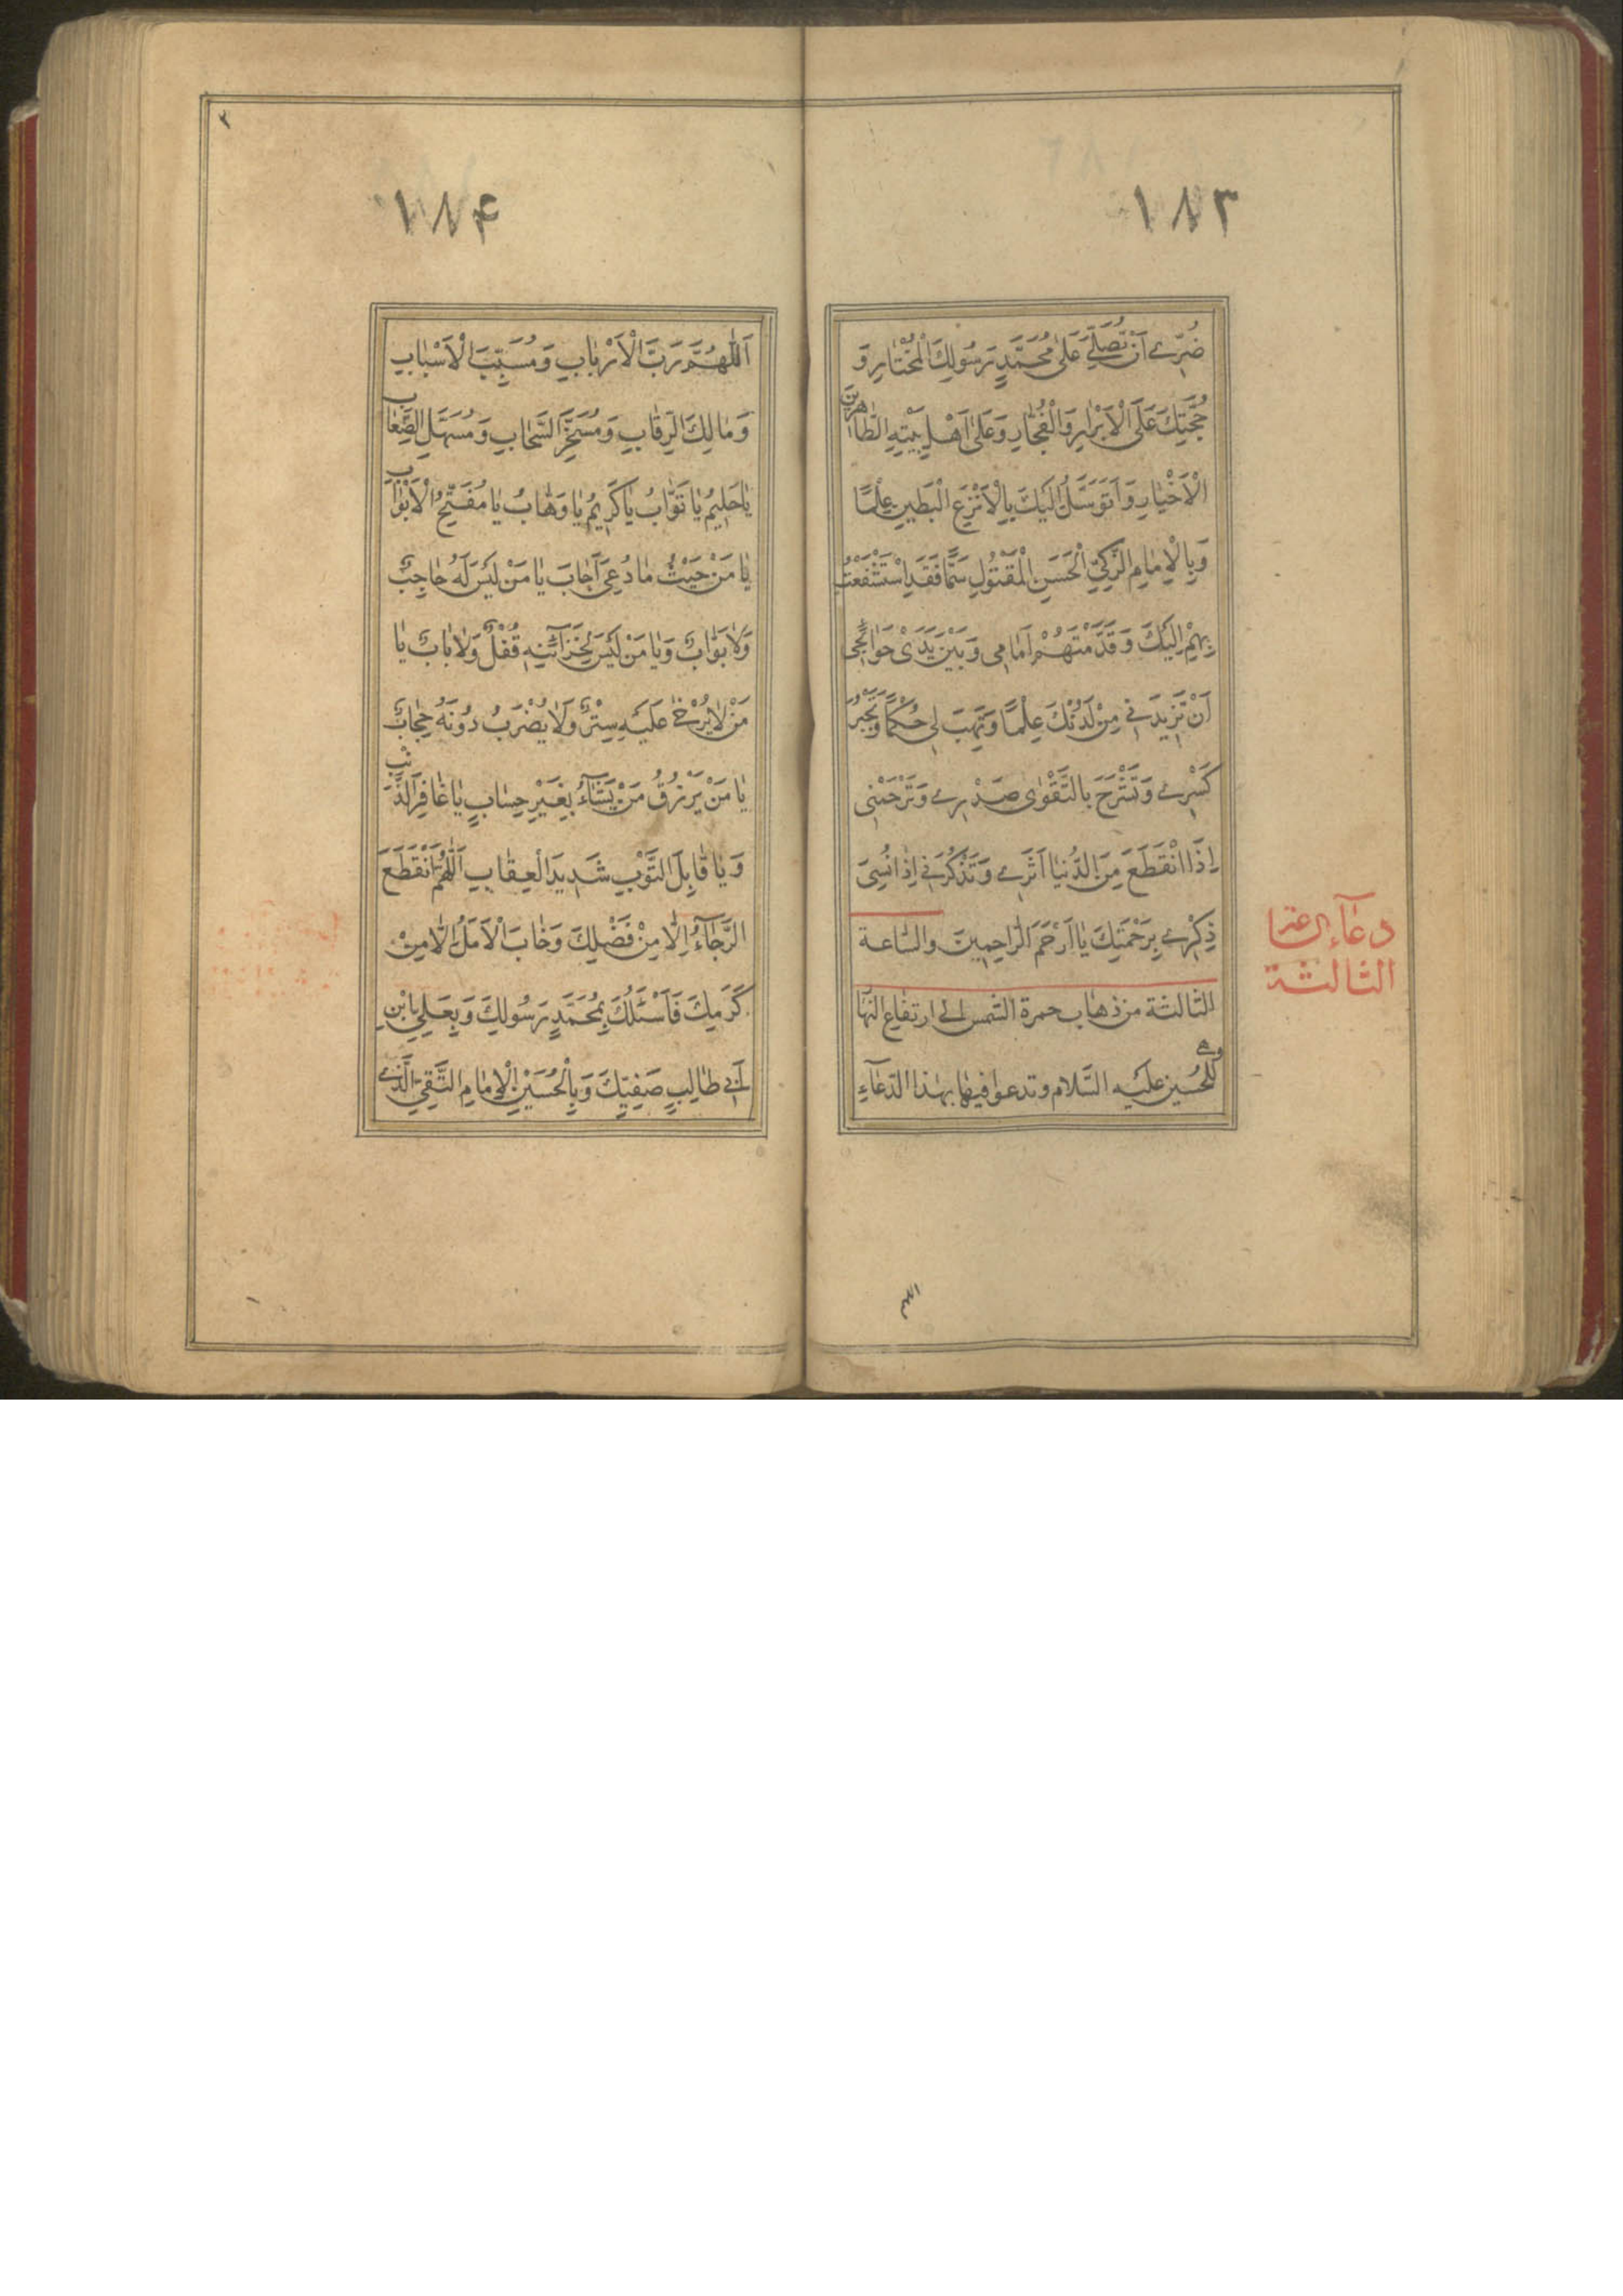 ١٨٣
ضُرّي اَنْ تُصَلِّيَ عَلىٰ مُحَمَّدٍ رَسُولِكَ الْمُخْتٰارِ وَ
حُجَّتِكَ عَلَى الْاَبْرٰارِ وَالْفُجّٰارِ وَعَلىٰ اَهْلِ بَيْتِهِ الطّٰاهِرينَ
الْاَخْيٰارِ وَ اَتَوَسَّلُ اِلَيْكَ بِالْاَنْزَعِ الْبَطينِ عِلْمًا
وَبِالْاِمٰامِ الزَّكِيِّ الْحَسَنِ الْمَقْتُولِ سَمًّا فَقَدِ اسْتَشْفَعْتُ
بِهِمْ اِلَيْكَ وَ قَدَّمْتُهُمْ اَمٰامي وَ بَيْنَ يَدَيْ حَوٰائِجي
اَنْ تَزيدَني مِنْ لَدُنْكَ عِلْمًا وَ تَهَبَ لي حُكْمًا وَ تَجْبُرَ
كَسْري وَ تَشْرَحَ بِالتَّقْوٰى صَدْري وَ تَرْحَمَني
اِذَا انْقَطَعَ مِنَ الدُّنْيٰا اَثَري وَ تَذْكُرَني اِذٰا نُسِيَ
ذِكْري بِرَحْمَتِكَ يٰا اَرْحَمَ الرّٰاحِمينَ والسّاعة
دعآء الساعة
الثالثة
الثالثة من ذهاب حمرة الشمس الى ارتفاع النهٰا
وهي
للحُسين عليه السَّلام و تدعوا فيها بهٰذا الدّعآءِ
١٨٤
اَللّٰهُمَّ رَبَّ الْاَرْبٰابِ وَ مُسَبِّبَ الْاَسْبٰابِ
وَ مٰالِكَ الرِّقٰابِ وَ مُسَخِّرَ السَّحٰابِ وَ مُسَهِّلَ الصِّعٰابِ
يٰا حَليمُ يٰا تَوّٰابُ يٰا كَريمُ يٰا وَهّٰابُ يٰا مُفَتِّحَ الْاَبْوٰابِ
يٰا مَنْ حَيْثُ مٰا دُعِيَ اَجٰابَ يٰا مَنْ لَيْسَ لَهُ حٰاجِبٌ
وَلٰا بَوّٰابٌ وَيٰا مَنْ لَيْسَ لِخَزٰآئِنِهِ قُفْلٌ وَلٰا بٰابٌ يٰا
مَنْ لٰا يُرْخىٰ عَلَيْهِ سِتْرٌ وَلٰا يُضْرَبُ دُونَهُ حِجٰابٌ
يٰا مَنْ يَرْزُقُ مَنْ يَشٰآءُ بِغَيْرِ حِسٰابٍ يٰا غٰافِرَ الذَّنْبِ
وَ يٰا قٰابِلَ التَّوْبِ شَديدَ الْعِقٰابِ اَللّٰهُمَّ انْقَطَعَ
الرَّجٰآءُ اِلّٰا مِنْ فَضْلِكَ وَ خٰابَ الْاَمَلُ اِلّٰا مِنْ
كَرَمِكَ فَاَسْئَلُكَ بِمُحَمَّدٍ رَسُولِكَ وَ بِعَلِيِّ بْنِ
اَبي طٰالِبٍ صَفِيِّكَ وَ بِالْحُسَيْنِ الْاِمٰامِ التَّقِيِّ الَّذي